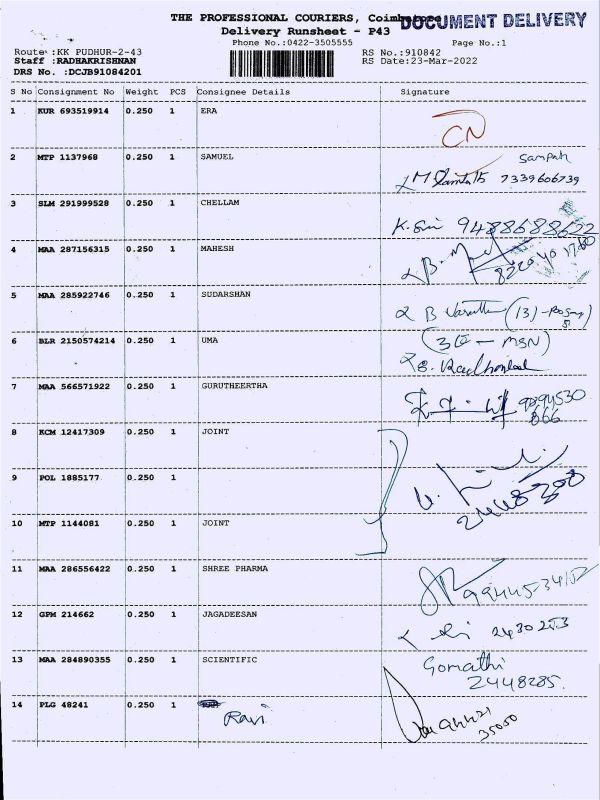 THE PROFESSIONAL COURIERS, Coimbatore
DOCUMENT DELIVERY
Delivery Runsheet - P43
Phone No.:0422-3505555
Page No.:1
Route :KK PUDHUR-2-43
RS No.:910842
Staff :RADHAKRISHNAN
RS Date:23-Mar-2022
DRS No. :DCJB91084201
S No Consignment No Weight PCS Consignee Details Signature
1 KUR 693519914 0.250 1 ERA CN
2 MTP 1137968 0.250 1 SAMUEL Sampath
7339606739
3 SLM 291999528 0.250 1 CHELLAM 9488688622
4 MAA 287156315 0.250 1 MAHESH
5 MAA 285922746 0.250 1 SUDARSHAN
6 BLR 2150574214 0.250 1 UMA
7 MAA 566571922 0.250 1 GURUTHEERTHA 9894530
866
8 KCM 12417309 0.250 1 JOINT
9 POL 1885177 0.250 1
10 MTP 1144081 0.250 1 JOINT
11 MAA 286556422 0.250 1 SHREE PHARMA
12 GPM 214662 0.250 1 JAGADEESAN
13 MAA 284890355 0.250 1 SCIENTIFIC Gomathi
2448285.
14 PLG 48241 0.250 1 Ravi 94421
35050